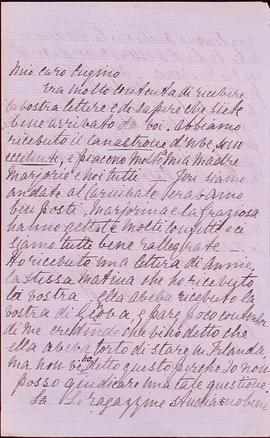 Mio caro Cugino
Era molto contenta di ricebere
la vostra lettera e di sapere che siete
bene arribato da voi. Abbiamo
ricebuto il canastrone d'ube, sono
eccellente, e piacono molto mia madre
Marjorie e noi tutti — Jeri siamo
andate al Carnibale ed abbiamo
ben posti, Marjorina e la
hanno gettate molti confetti e ci
siamo tutti bene rallegrate —
Ho ricebuto una lettera di Annie,
la stessa matina che ho ricebuto
la vostra. ella abeba ricebuto la
vostra di e pare poco contenta
di me credendo che vi ho detto che
ella abeba torto di stare in Irlanda,
ma non vi ho detto questo perche Io non
posso giudicare una tale questione,
La ragazzine studiano bene